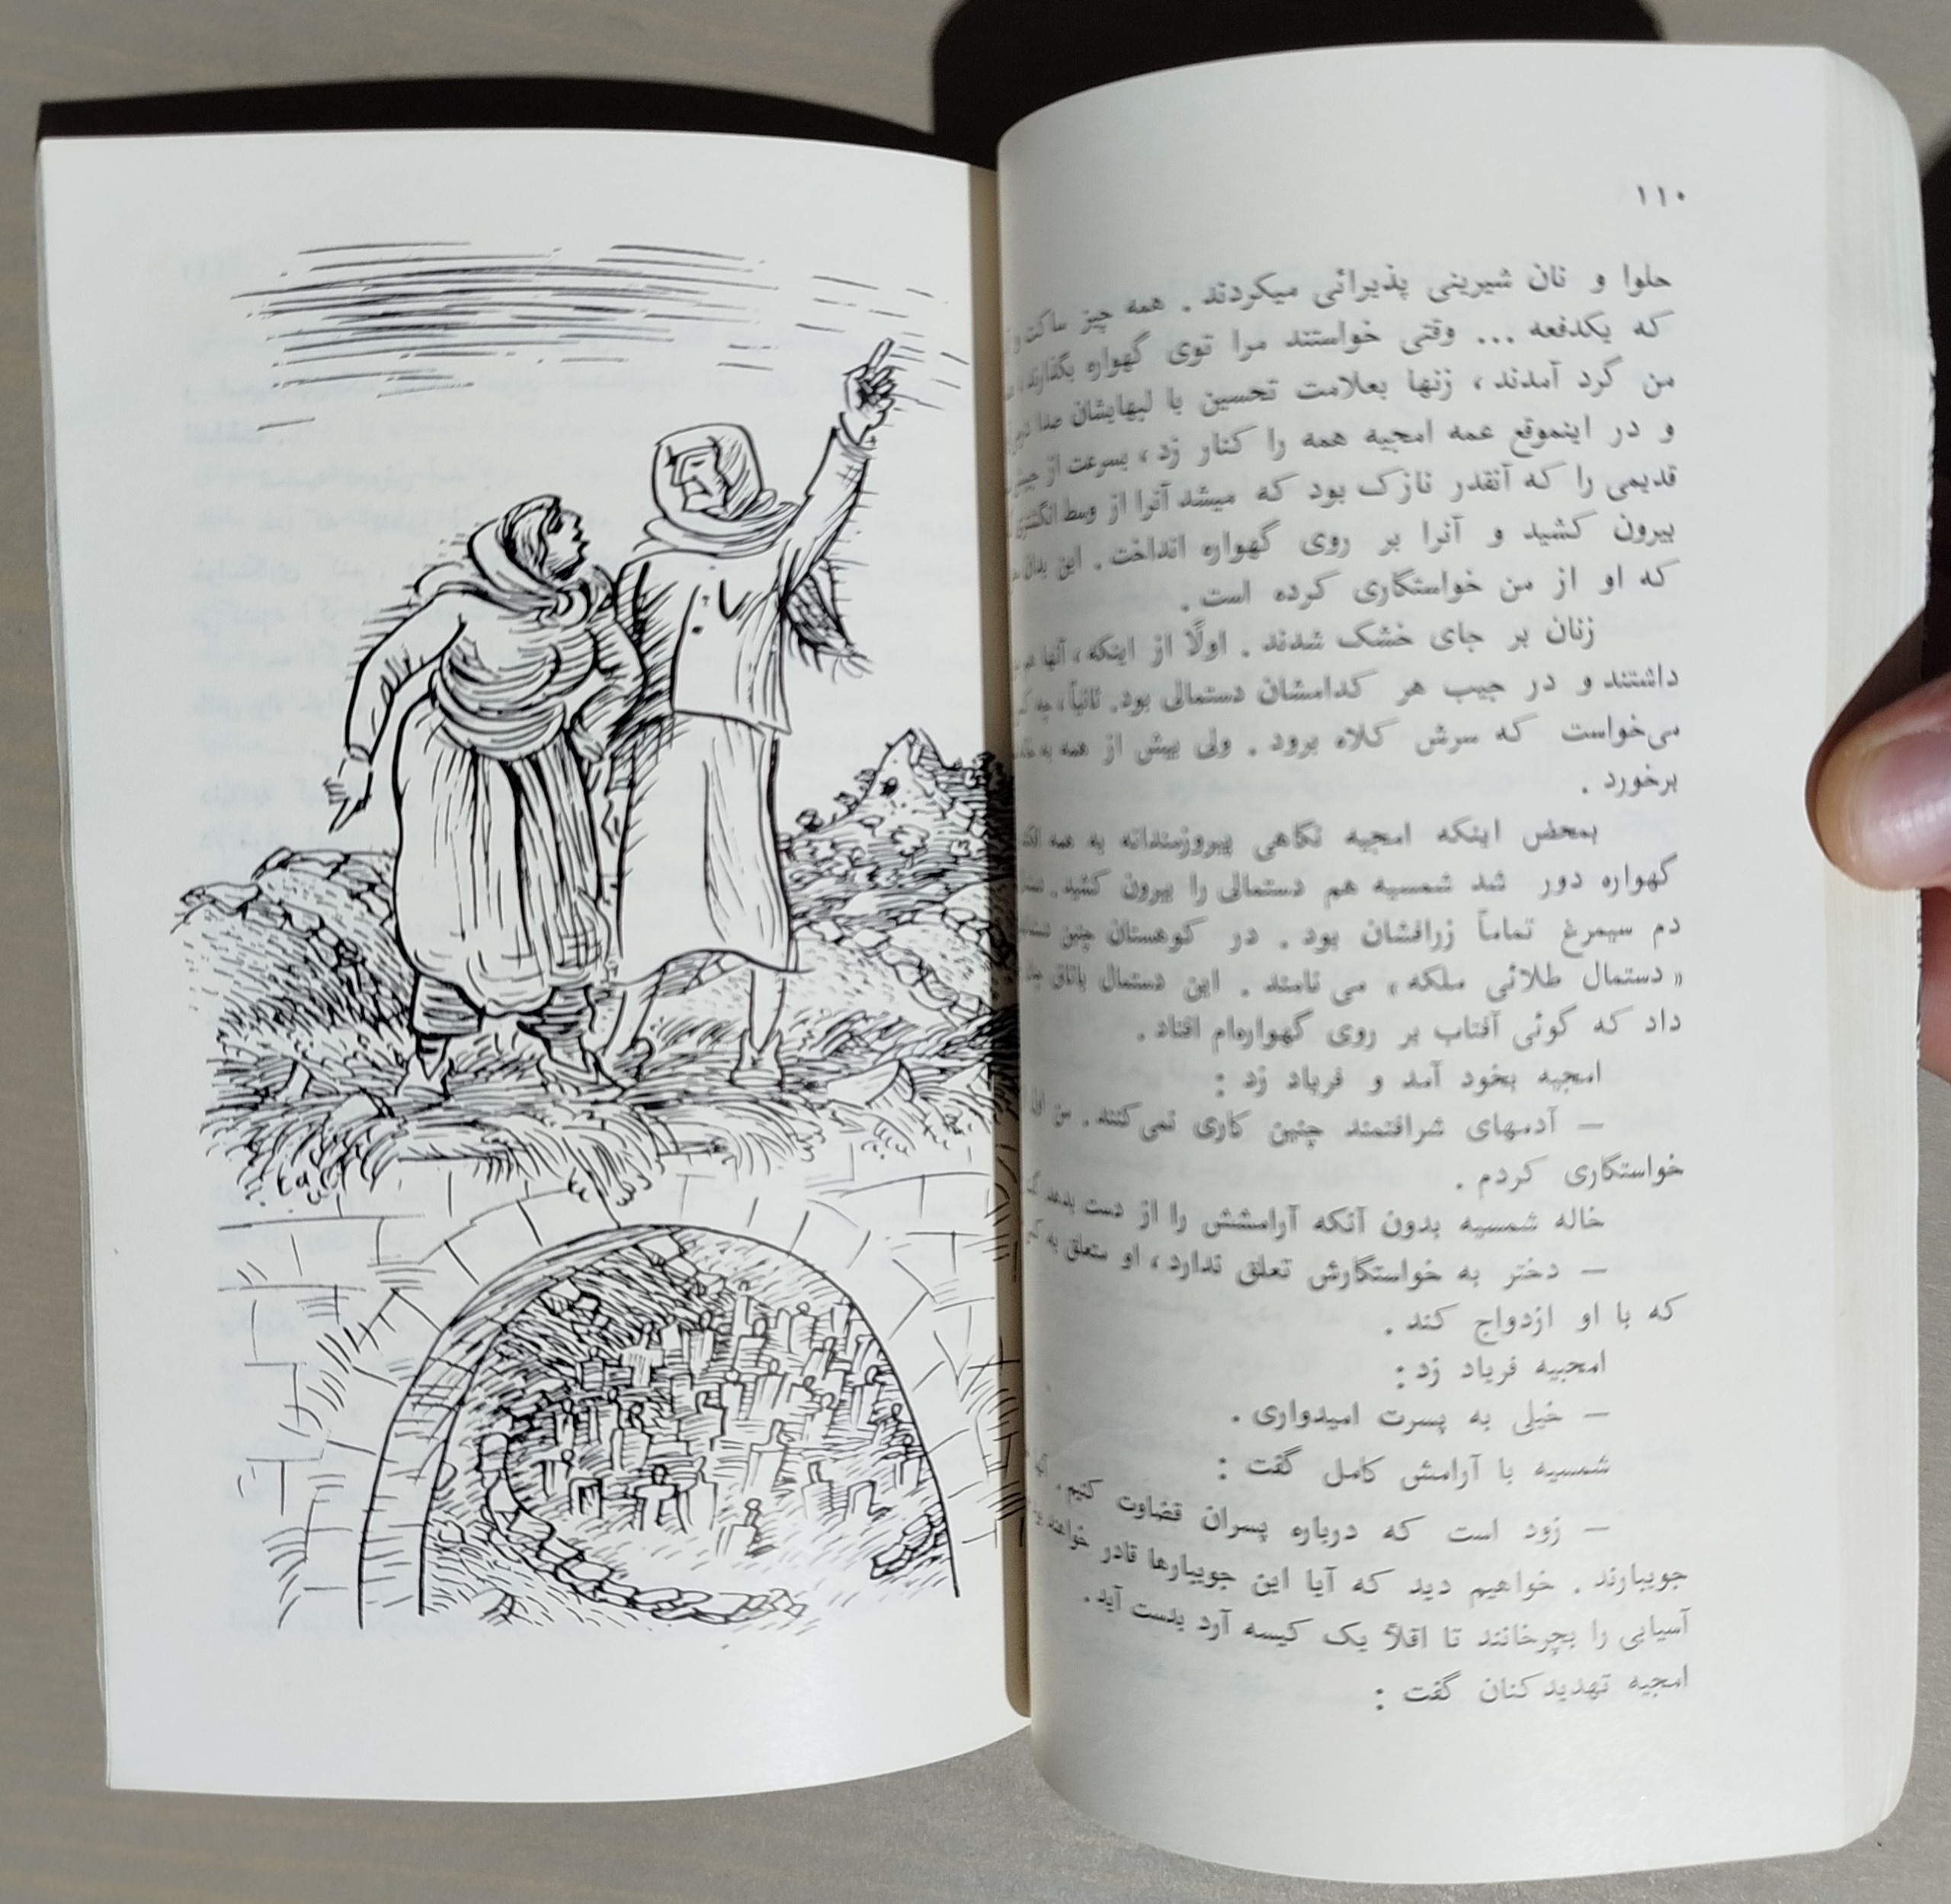 ۱۱۰
حلوا و نان شیرینی پذیرائی میکردند . همه چیز ساکت و
که یکدفعه ... وقتی خواستند مرا توی گهواره بگذارند ،
من گرد آمدند ، زنها بعلامت تحسین با لبهایشان صدا
و در اینموقع عمه امجیه همه را کنار زد ، بسرعت از
قدیمی را که آنقدر نازک بود که میشد آنرا از وسط انگشتری
بیرون کشید و آنرا بر روی گهواره انداخت . این بدان
که او از من خواستگاری کرده است .
زنان بر جای خشک شدند . اولاً از اینکه ، آنها هم
داشتند و در جیب هر کدامشان دستمالی بود . ثانیاً ،
می‌خواست که سرش کلاه برود . ولی بیش از همه به
برخورد .
بمحض اینکه امجیه نگاهی پیروزمندانه به همه
گهواره دور شد شمسیه هم دستمالی را بیرون کشید .
دم سیمرغ تماماً زرافشان بود . در کوهستان چنین
« دستمال طلائی ملکه » می نامند . این دستمال باتاق
داد که گوئی آفتاب بر روی گهواره‌ام افتاد .
امجیه بخود آمد و فریاد زد :
— آدمهای شرافتمند چنین کاری نمی‌کنند . من اول
خواستگاری کردم .
خاله شمسیه بدون آنکه آرامشش را از دست بدهد
— دختر به خواستگارش تعلق ندارد ، او متعلق به
که با او ازدواج کند .
امجیه فریاد زد :
— خیلی به پسرت امیدواری .
شمسیه با آرامش کامل گفت :
— زود است که درباره پسران قضاوت کنیم . آنها
جویبارند . خواهیم دید که آیا این جویبارها قادر خواهند
آسیابی را بچرخانند تا اقلاً یک کیسه آرد بدست آید .
امجیه تهدیدکنان گفت :